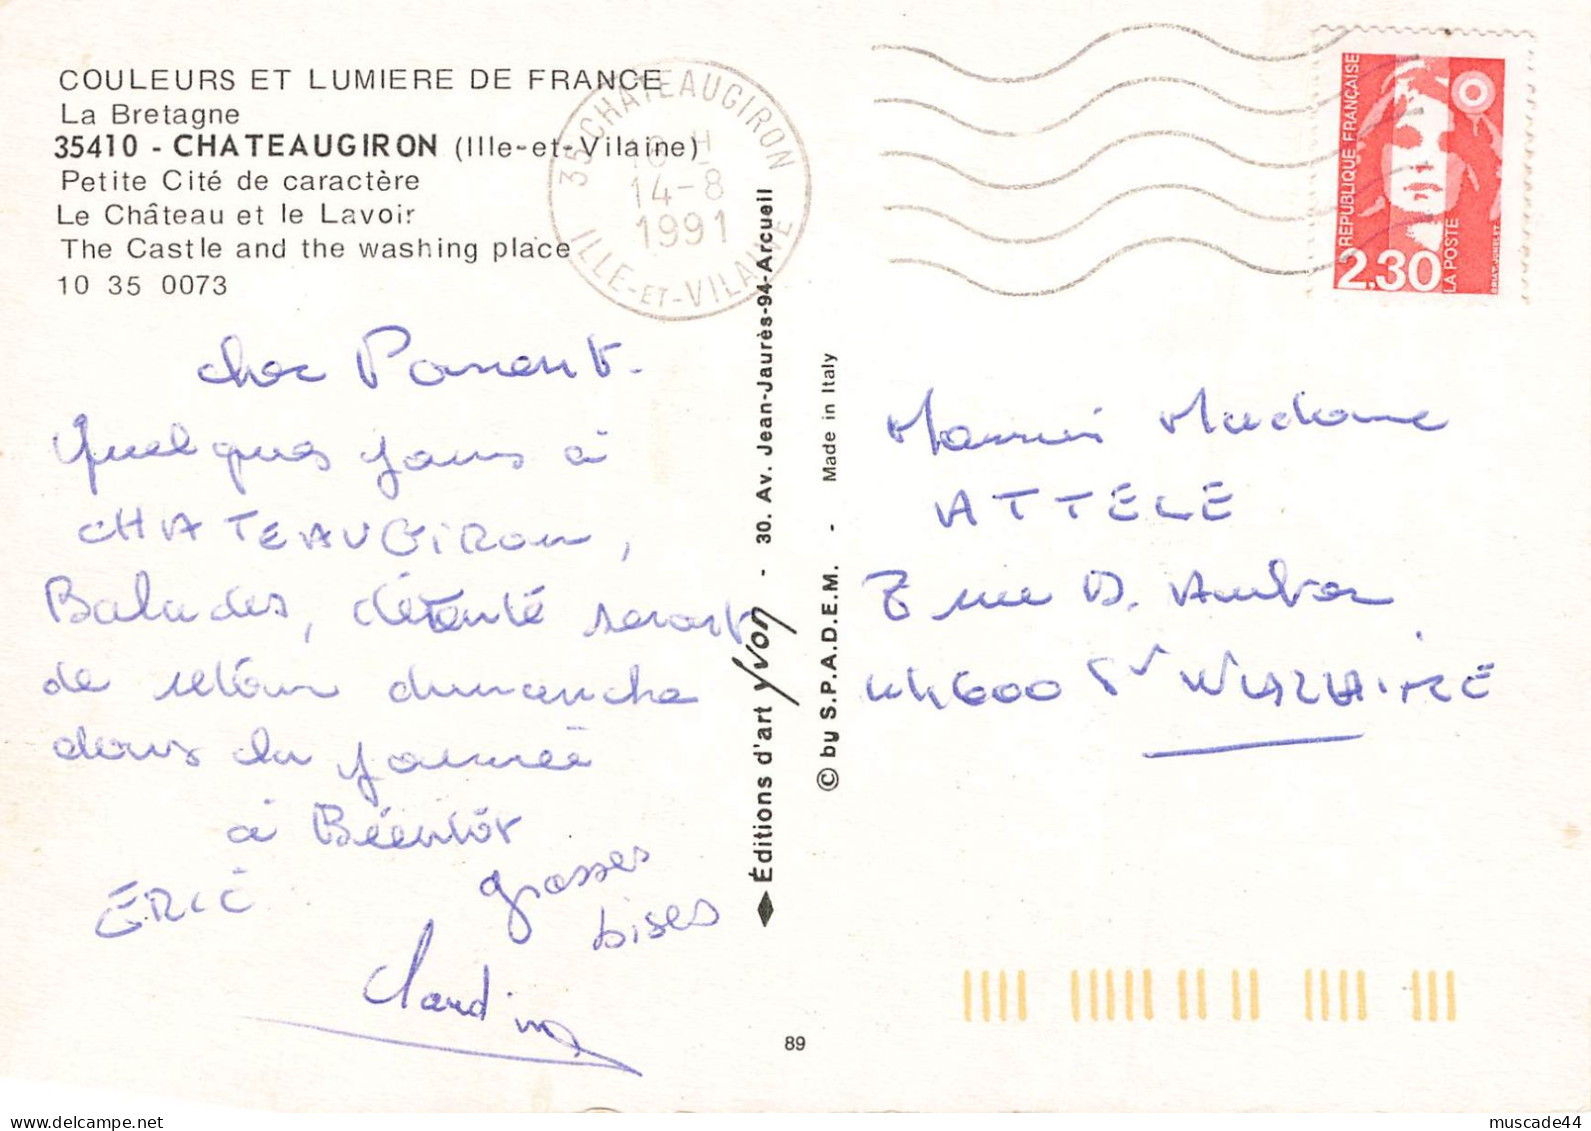 COULEURS ET LUMIERE DE FRANCE
La Bretagne
35410 - CHATEAUGIRON (Ille-et-Vilaine)
Petite Cité de caractère
Le Château et le Lavoir
The Castle and the washing place
10 35 0073
35 CHATEAUGIRON
14-8
1991
ILLE-ET-VILAINE
REPUBLIQUE FRANÇAISE
LA POSTE
2,30
cher Parent.
Quelques jours à
CHATEAUGIRON,
Balades, détente seront
de retour dimanche
dans la journée
à Bientôt
ERIC
grosses
bises
Claudine
Éditions d'art Yvon - 30. Av. Jean-Jaurès-94-Arcueil
© by S.P.A.D.E.M. - Made in Italy
Madame
ATTELE
rue
44600 St NAZAIRE
89
muscade44